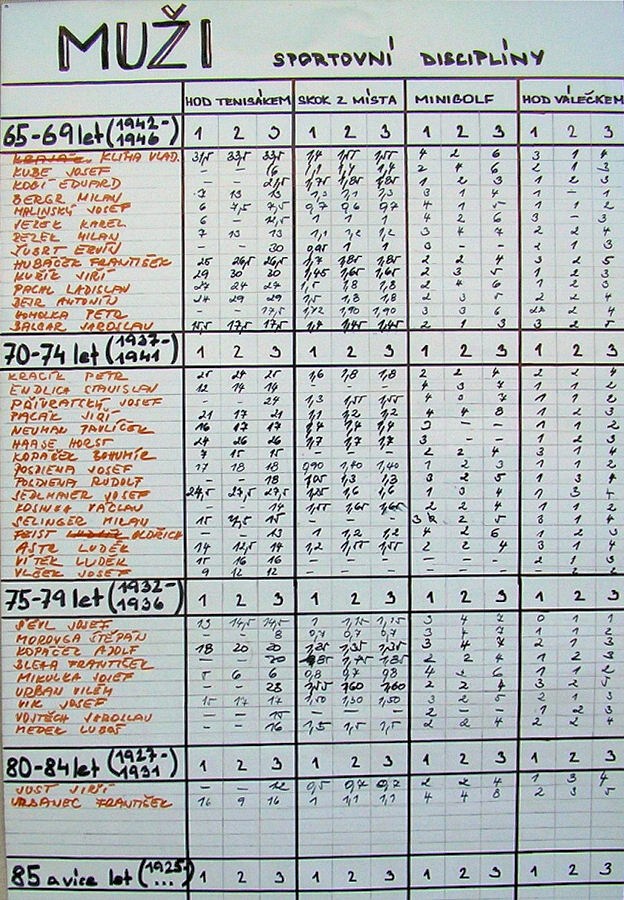 MUŽI SPORTOVNÍ DISCIPLÍNY
HOD TENISÁKEM SKOK Z MÍSTA MINIGOLF HOD VÁLEČKEM
65-69 let (1942-1946) 1 2 3 1 2 3 1 2 3 1 2 3
KLIMA VLAD. 31,5 33,5 33,5 1,4 1,55 1,55 4 2 6 3 1 4
KUBE JOSEF - - 16 1,1 1,4 1,4 2 4 6 2 1 3
KOBI EDUARD - - 21,5 1,75 1,85 1,85 1 2 3 1 2 3
BERGR MILAN 7 13 13 1,3 1,1 1,3 3 1 4 1 - 1
MALINSKÝ JOSEF 6 7,5 7,5 0,7 0,6 0,7 4 1 5 1 1 2
JEZEK KAREL 6 - 1 1 1 4 2 6 3 - 3
REZEK MILAN 7 13 13 1,1 1,2 1,2 3 4 7 2 2 4
ŠUBRT ERVÍN - - 30 0,95 1 1 3 - - 2 1 3
HUBÁČEK FRANTIŠEK 25 26,5 26,5 1,7 1,85 1,85 2 2 4 3 2 5
KUŘÍK JIŘÍ 29 30 30 1,45 1,65 1,65 2 3 5 1 2 3
PACHL LADISLAV 27 24 27 1,5 1,8 1,8 2 4 6 1 2 3
BEJR ANTONÍN 24 29 29 1,5 1,8 1,8 2 3 5 2 2 4
HOMOLKA PETR - - 17,5 1,72 1,90 1,90 3 3 6 2 2 4
BALCAR JAROSLAV 15,5 17,5 17,5 1,4 1,45 1,45 2 1 3 3 2 5
70-74 let (1937-1941) 1 2 3 1 2 3 1 2 3 1 2 3
KRACÍK PETR 25 24 25 1,6 1,8 1,8 2 2 4 2 2 4
ENDLICH STANISLAV 12 14 14 - - - 4 3 7 1 1 2
PŘÍVRATSKÝ JOSEF - - 24 1,3 1,55 1,55 4 0 7 1 1 2
PACÁK JIŘÍ 21 17 21 1,1 1,2 1,2 4 4 8 1 2 3
NEUMAN PAVLÍČEK 16 17 17 1,4 1,4 1,4 3 - - 1 1 2
HAASE HORST 24 26 26 1,7 1,7 1,7 3 - - 1 2 3
KOPÁČEK BOHUMÍR 7 15 15 - - - 2 2 4 3 1 4
POSDIENA JOSEF 17 18 18 0,90 1,40 1,40 1 2 3 1 1 2
POSDIENA RUDOLF - - 18 1,05 1,3 1,3 3 2 5 1 3 4
SEDLMAJER JOSEF 24,5 27,5 27,5 1,25 1,6 1,6 1 3 4 1 3 4
KOSINKA VÁCLAV - - 14 1,55 1,65 1,65 2 2 4 1 1 2
SELINGER MILAN 15 15 - - - 3 2 5 3 1 4
FEIST OLDŘICH - - 13 1 1,2 1,2 4 2 6 1 2 3
ASTR LUDĚK 14 12,5 14 1,2 1,55 1,55 2 2 4 3 1 4
VÍTEK LUDĚK 15 16 16 - - - - - - 2 1 3
VLČEK JOSEF 9 12 12 - - - - - - - 2 2
75-79 let (1932-1936) 1 2 3 1 2 3 1 2 3 1 2 3
ŠEVL JOSEF 13 14,5 14,5 1 1,15 1,15 3 4 7 0 1 1
MOROVGA ŠTĚPÁN - - 8 0,7 0,7 0,7 3 4 7 1 1 2
KOPÁČEK ADOLF 18 20 20 1,25 1,35 1,35 3 4 7 2 1 3
BLEHA FRANTIŠEK - - 20 1,75 1,85 2 2 4 1 2 3
MIKULKA JOSEF 5 6 6 0,8 0,7 0,8 4 6 1 1 2
URBAN VILÉM - - 23 1,55 1,60 1,60 2 2 4 3 2 5
VIK JOSEF 15 17 17 1,50 1,30 1,50 3 2 5 2 1 3
VOJTĚCH JAROSLAV - - 15 - - - 2 - - 1 2 3
MEDEK LUBOŠ - - 16 1,3 1,5 1,5 2 2 4 2 2 4
80-84 let (1927-1931) 1 2 3 1 2 3 1 2 3 1 2 3
JUST JIŘÍ - - 12 0,5 0,7 0,7 2 2 4 1 3 4
URBANEC FRANTIŠEK 16 9 16 1 1,1 1,1 4 4 8 2 3 5
85 a více let (1925-...) 1 2 3 1 2 3 1 2 3 1 2 3